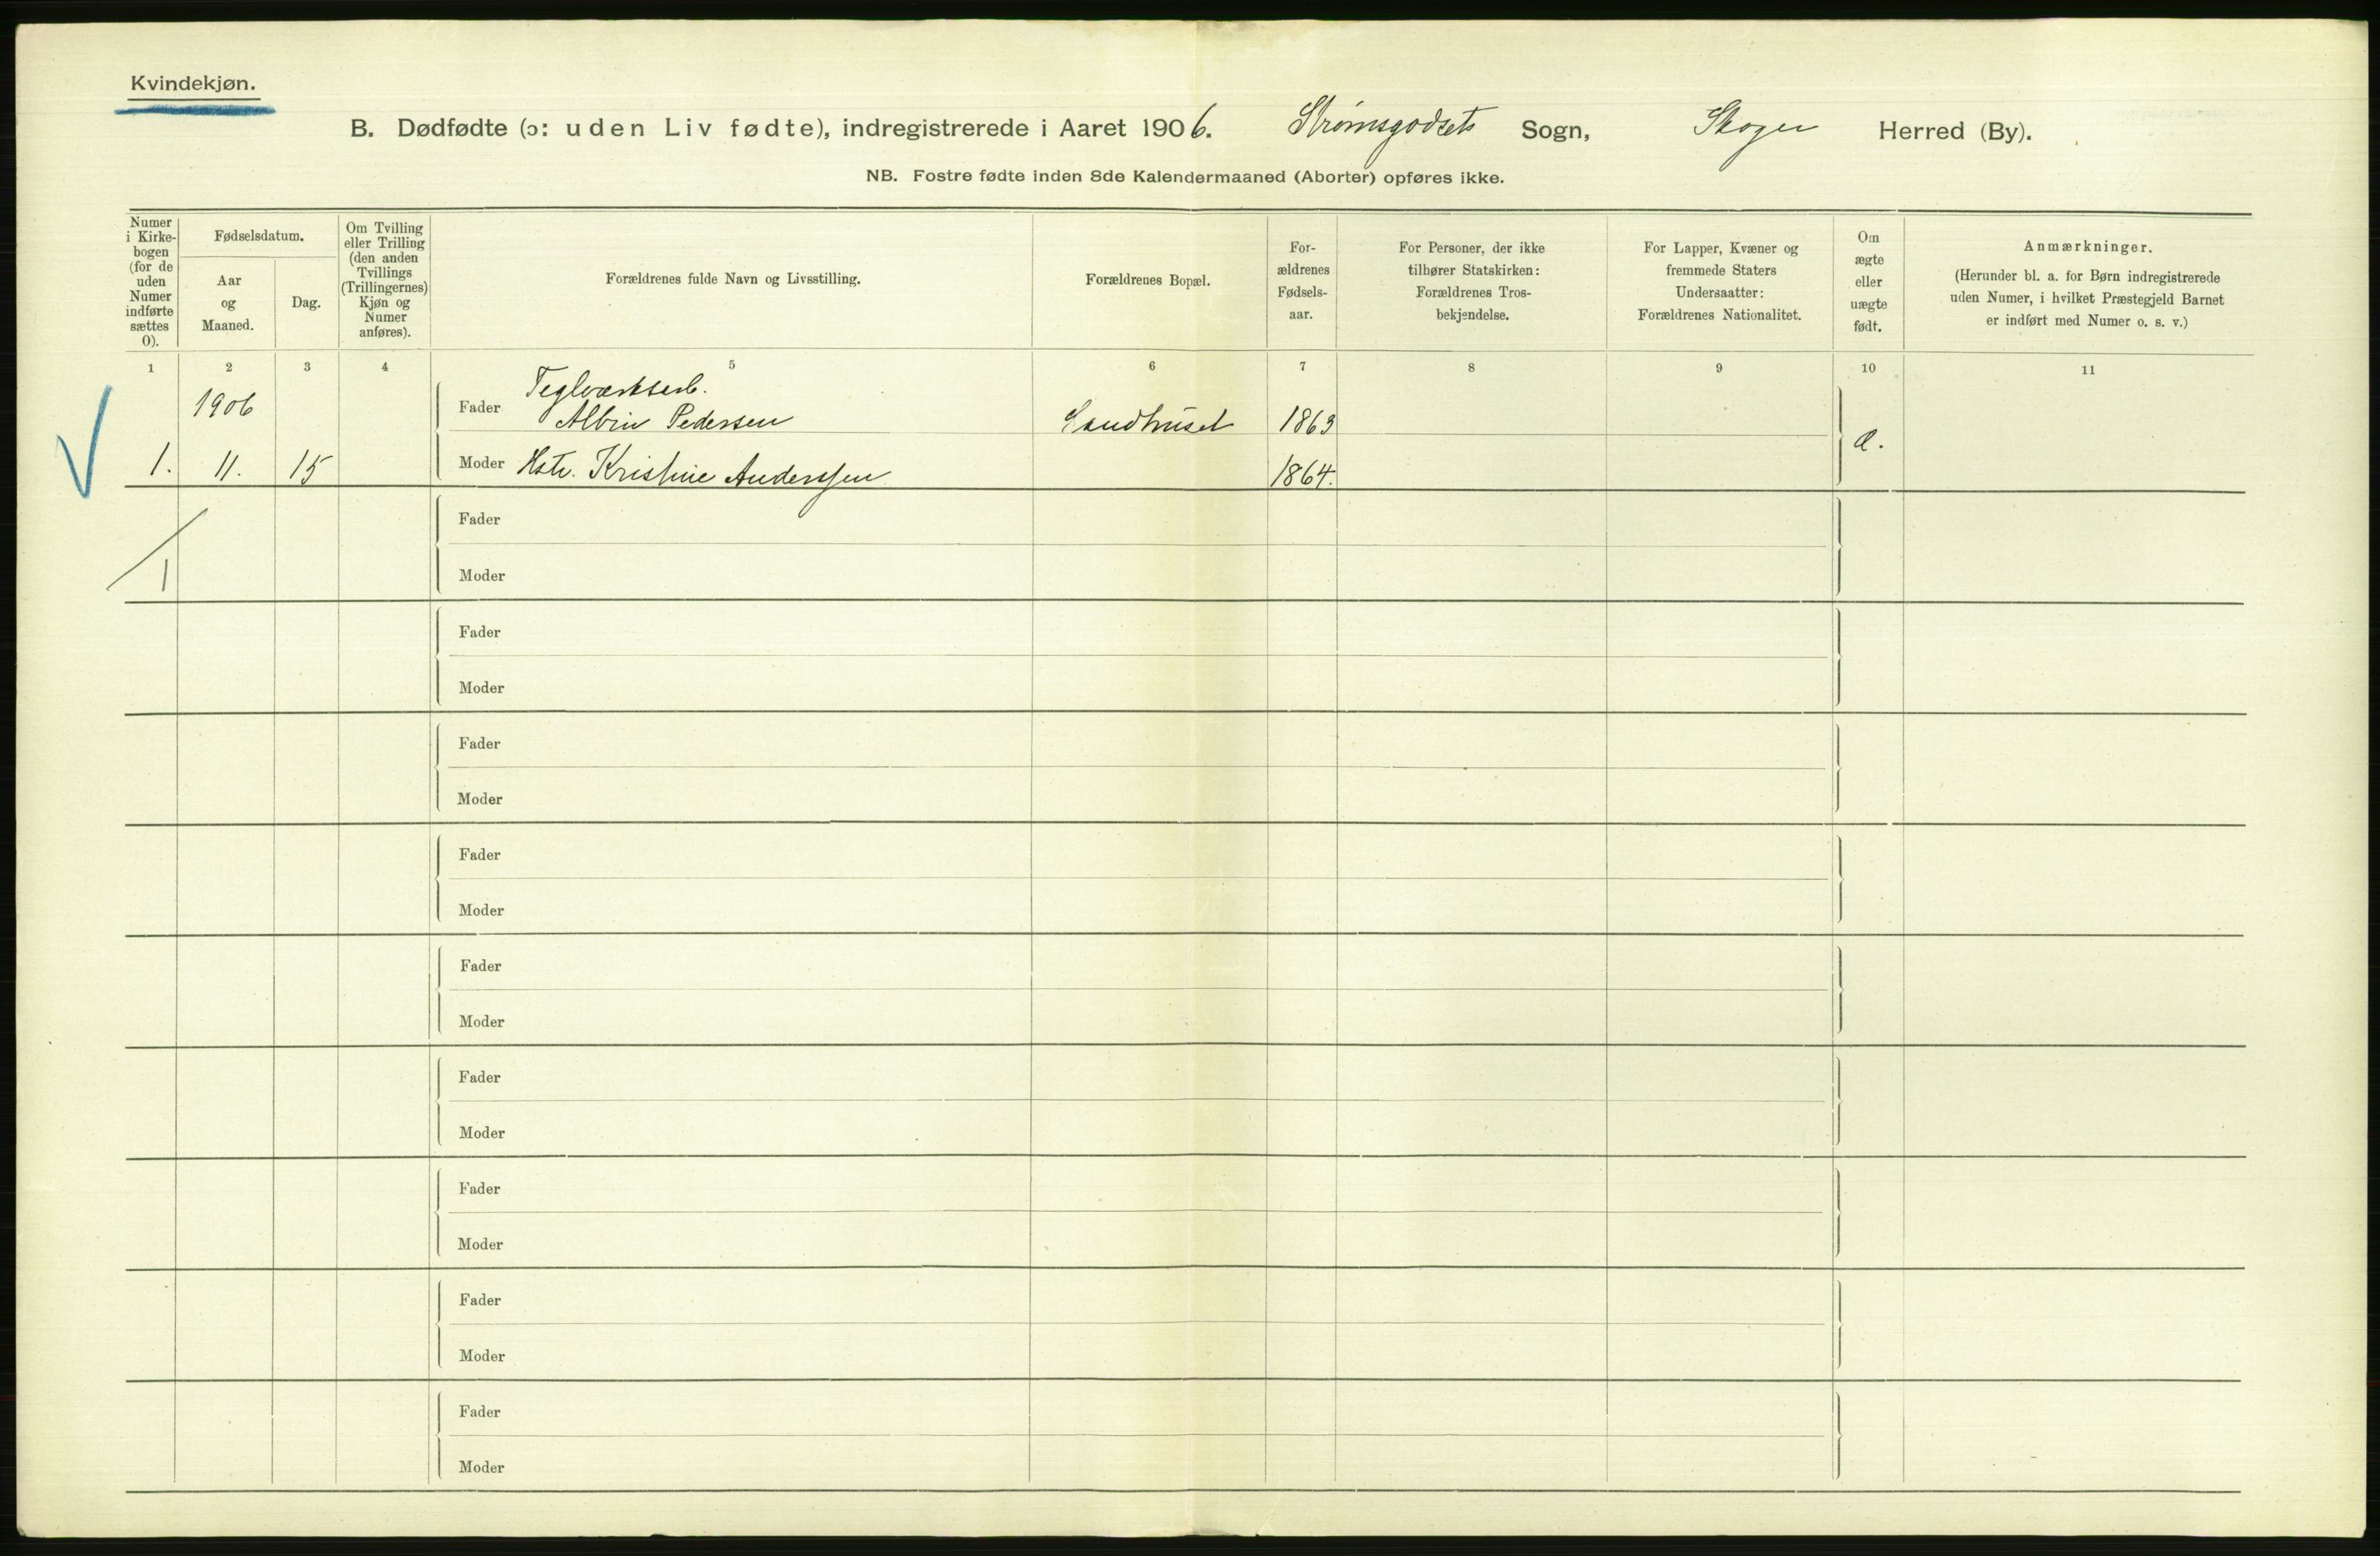 Kvindekjøn.
B. Dødfødte (ɔ: uden Liv fødte), indregistrerede i Aaret 1906. Strømsgodsets Sogn, Skoger Herred (By).
NB. Fostre fødte inden 8de Kalendermaaned (Aborter) opføres ikke.
Numer
i Kirke-
bogen
(for de
uden
Numer
indførte
sættes
0).
Fødselsdatum.
Aar
og
Maaned.
Dag.
Om Tvilling
eller Trilling
(den anden
Tvillings
(Trillingernes)
Kjøn og
Numer
anføres).
Forældrenes fulde Navn og Livsstilling.
Forældrenes Bopæl.
For-
ældrenes
Fødsels-
aar.
For Personer, der ikke
tilhører Statskirken:
Forældrenes Tros-
bekjendelse.
For Lapper, Kvæner og
fremmede Staters
Undersaatter:
Forældrenes Nationalitet.
Om
ægte
eller
uægte
født.
Anmærkninger.
(Herunder bl. a. for Børn indregistrerede
uden Numer, i hvilket Præstegjeld Barnet
er indført med Numer o. s. v.)
1 2 3 4 5 6 7 8 9 10 11
Teglværksarb.
1906 Fader Albin Pedersen Sandhuset 1863
1. 11. 15 Moder Hstr. Kristine Anderssen 1864.
Fader
1
Moder
Fader
Moder
Fader
Moder
Fader
Moder
Fader
Moder
Fader
Moder
Fader
Moder
Fader
Moder
Fader
Moder